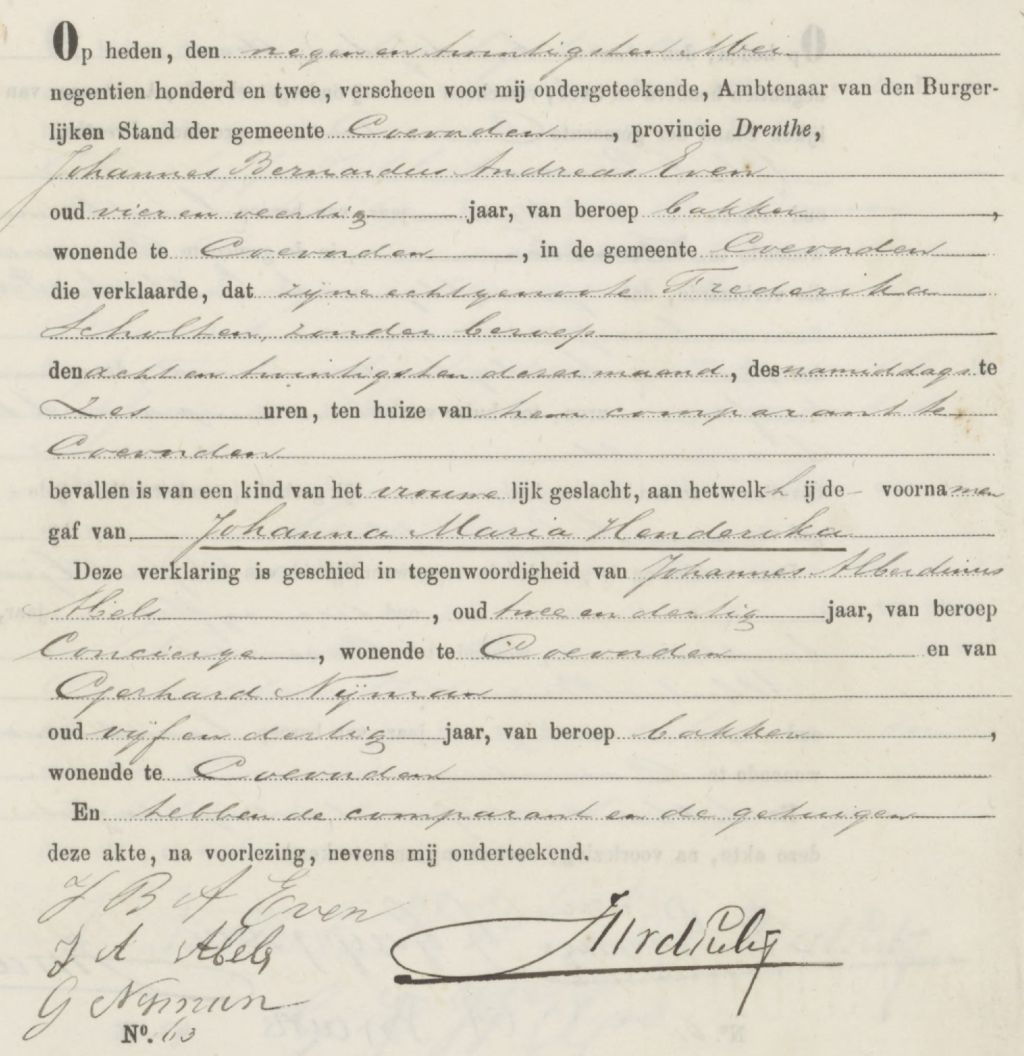 Op heden, den negen en twintigsten Mei
negentien honderd en twee, verscheen voor mij ondergeteekende, Ambtenaar van den Burger-
lijken Stand der gemeente Coevorden, provincie Drenthe,
Johannes Bernardus Andreas Even
oud vier en veertig jaar, van beroep bakker,
wonende te Coevorden, in de gemeente Coevorden
die verklaarde, dat zijne echtgenoote Frederika
Scholten, zonder beroep
den acht en twintigsten dezer maand, des namiddags te
Zes uren, ten huize van hem comparant te
Coevorden
bevallen is van een kind van het vrouwelijk geslacht, aan hetwelk hij de voornamen
gaf van Johanna Maria Henderika
Deze verklaring is geschied in tegenwoordigheid van Johannes Alberdinus
Abels, oud twee en dertig jaar, van beroep
Concierge, wonende te Coevorden en van
Gerhard Nijman
oud vijf en dertig jaar, van beroep bakker,
wonende te Coevorden
En hebben de comparant en de getuigen
deze akte, na voorlezing, nevens mij onderteekend.
J B A Even
J A Abels
G Nijman
Nº. 63